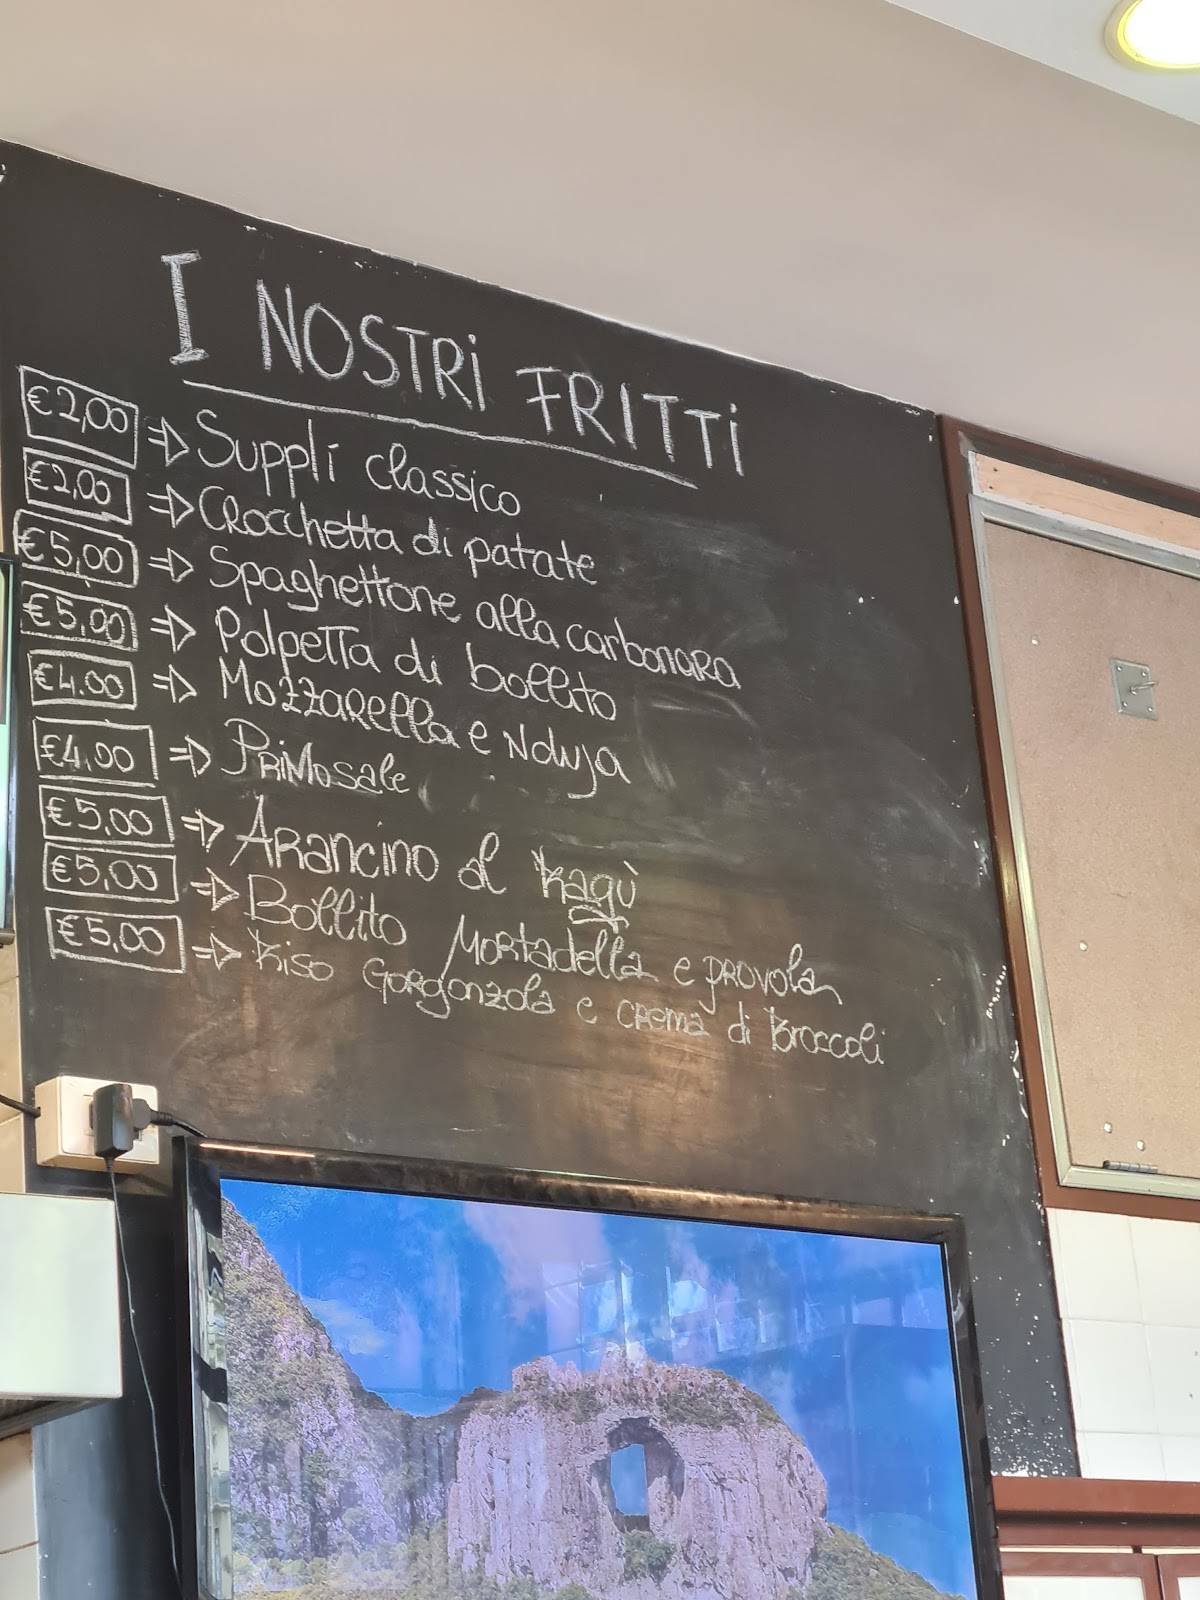 I NOSTRi FRITTi
€2,00 ⇒ Supplí classico
€2,00 ⇒ CRocchetta di patate
€5,00 ⇒ Spaghettone alla carbonaRa
€5,00 ⇒ PolpeTTa di bollito
€4.00 ⇒ MozzaRella e Nduja
€4,00 ⇒ PRiMosale
€5,00 ⇒ ARancino al Ragù
€5,00 ⇒ Bollito MoRtadella e pRovola
€5,00 ⇒ Riso GoRgonzola e cRema di Broccoli